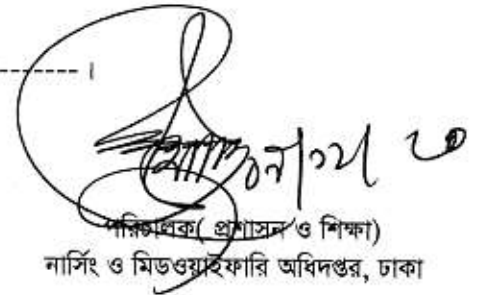 ---------- ।
পরিচালক( প্রশাসন ও শিক্ষা)
নার্সিং ও মিডওয়াইফারি অধিদপ্তর, ঢাকা